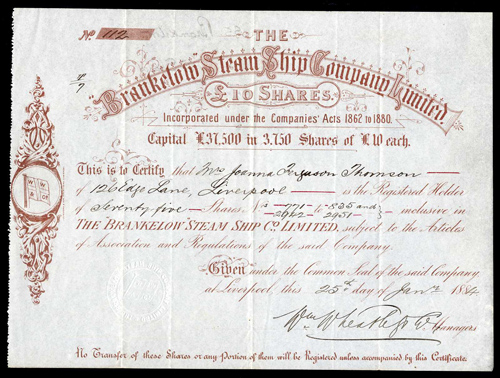 THE
No. 112
"Brankelow" Steam Ship Company Limited.
£10 SHARES.
Incorporated under the Companies' Acts 1862 to 1880.
Capital £37,500 in 3,750 Shares of £10 each.
This is to Certify that Mrs Joanna Ferguson Thomson
of 126 Edge Lane, Liverpool is the Registered Holder
of Seventy five Shares, 771 835 and
2942 2951 inclusive in
THE "BRANKELOW" STEAM SHIP Co. LIMITED, subject to the Articles
of Association and Regulations of the said Company.
Given under the Common Seal of the said Company
at Liverpool, this 25th day of Jany 1884
Wm Wheatley & Co. Managers
No Transfer of these Shares or any portion of them will be Registered unless accompanied by this Certificate.